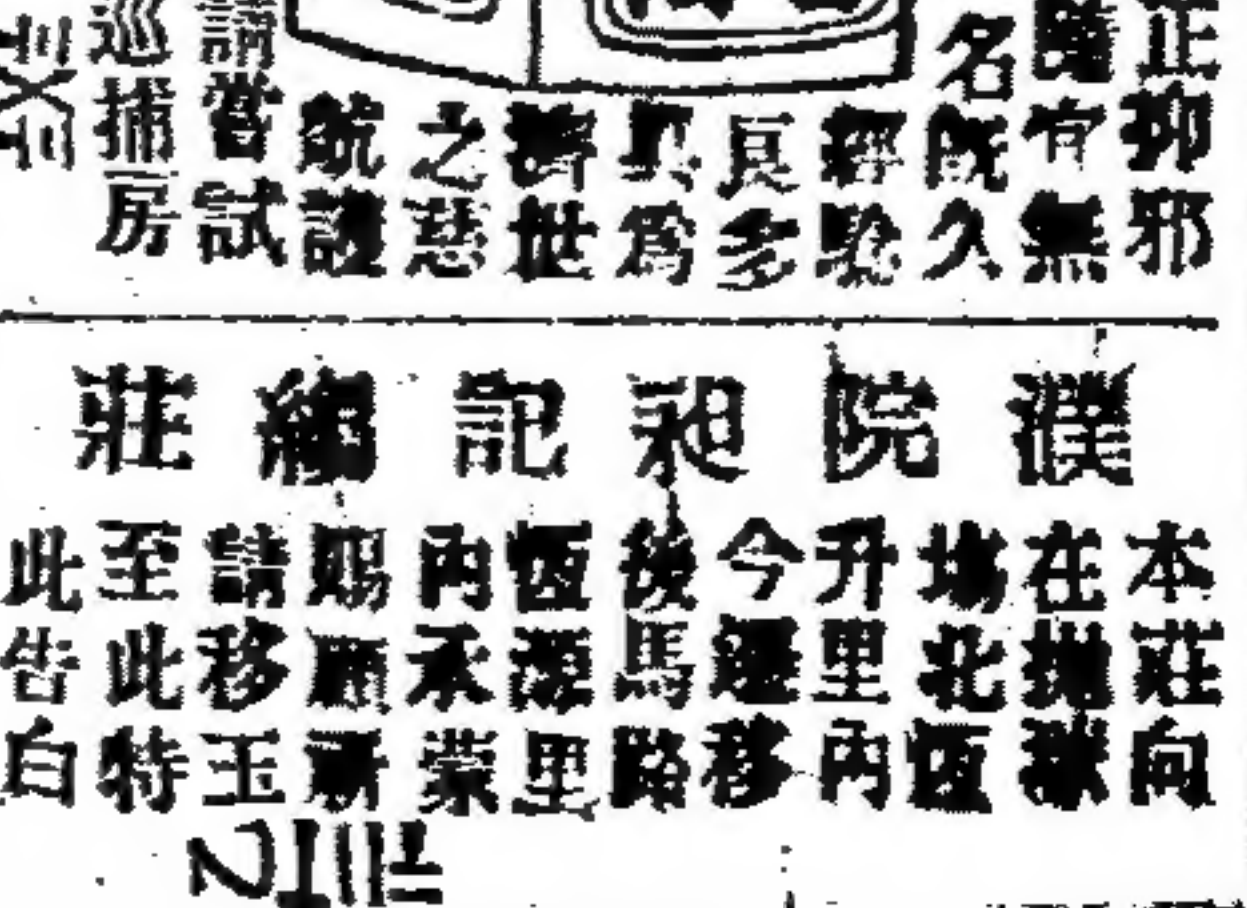 正抑邪
有無
名既久
經驗
良多
具爲
濟世
之慈
航謹
請嘗試
巡捕房
濮院昶記綢莊
本莊向
在抛毬
塲北恆
升里內
今遷移
後馬路
恆源里
內承蒙
賜顧祈
請移玉
至此特
此告白